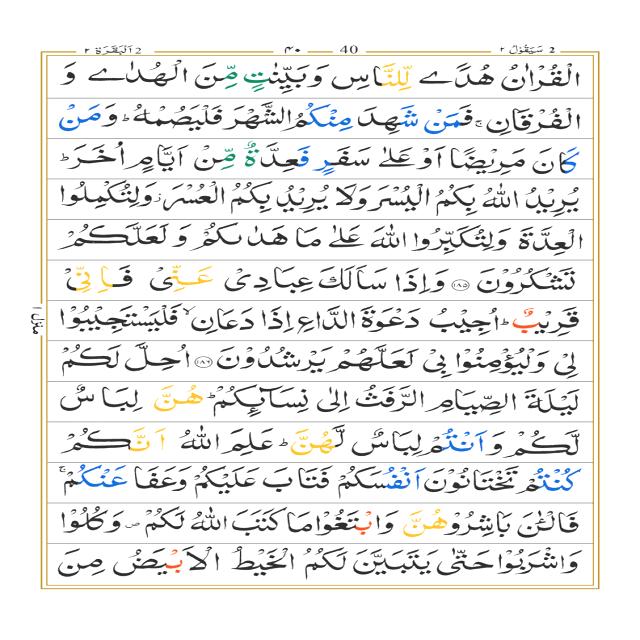 2 سَيَقُوْلُ ٢ 40 ۴۰ 2 اَلْبَقَرَة ٢
الْقُرْاٰنُ هُدًى لِّلنَّاسِ وَ بَيِّنٰتٍ مِّنَ الْهُدٰى وَ
الْفُرْقَانِ ۚ فَمَنْ شَهِدَ مِنْكُمُ الشَّهْرَ فَلْيَصُمْهُ ؕ وَ مَنْ
كَانَ مَرِيْضًا اَوْ عَلٰى سَفَرٍ فَعِدَّةٌ مِّنْ اَيَّامٍ اُخَرَ ؕ
يُرِيْدُ اللّٰهُ بِكُمُ الْيُسْرَ وَلَا يُرِيْدُ بِكُمُ الْعُسْرَ ؗ وَلِتُكْمِلُوا
الْعِدَّةَ وَلِتُكَبِّرُوا اللّٰهَ عَلٰى مَا هَدٰىكُمْ وَ لَعَلَّكُمْ
تَشْكُرُوْنَ ﴿۱۸۵﴾ وَاِذَا سَاَلَكَ عِبَادِىْ عَنِّىْ فَاِنِّىْ
قَرِيْبٌ ؕ اُجِيْبُ دَعْوَةَ الدَّاعِ اِذَا دَعَانِ ۙ فَلْيَسْتَجِيْبُوْا
لِىْ وَلْيُؤْمِنُوْا بِىْ لَعَلَّهُمْ يَرْشُدُوْنَ ﴿۱۸۶﴾ اُحِلَّ لَكُمْ
لَيْلَةَ الصِّيَامِ الرَّفَثُ اِلٰى نِسَآئِكُمْ ؕ هُنَّ لِبَاسٌ
لَّكُمْ وَ اَنْتُمْ لِبَاسٌ لَّهُنَّ ؕ عَلِمَ اللّٰهُ اَنَّكُمْ
كُنْتُمْ تَخْتَانُوْنَ اَنْفُسَكُمْ فَتَابَ عَلَيْكُمْ وَعَفَا عَنْكُمْ ۚ
فَالْـٰٔنَ بَاشِرُوْهُنَّ وَابْتَغُوْا مَا كَتَبَ اللّٰهُ لَكُمْ ۪ وَكُلُوْا
وَاشْرَبُوْا حَتّٰى يَتَبَيَّنَ لَكُمُ الْخَيْطُ الْاَبْيَضُ مِنَ
منزل ۱